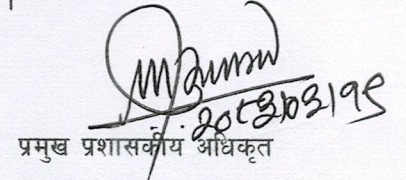 २०८३।०३।१९
प्रमुख प्रशासकीय अधिकृत